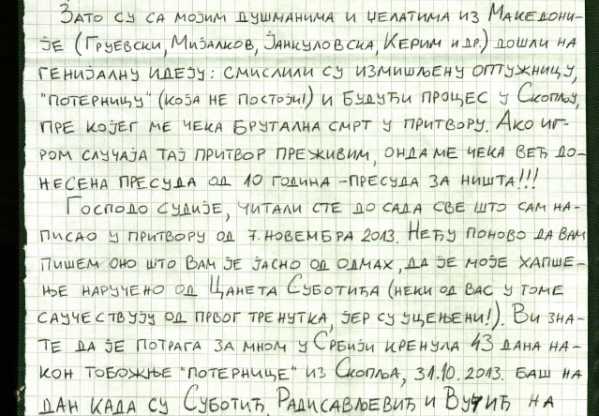 Зато су са мојим душманима и џелатима из Македони-
је (Груевски, Мијалков, Јанкуловска, Керим и др.) дошли на
генијалну идеју: смислили су измишљену оптужницу,
"потерницу" (која не постоји!) и будући процес у Скопљу,
пре којег ме чека брутална смрт у притвору. Ако иг-
ром случаја тај притвор преживим, онда ме чека већ до-
несена пресуда од 10 година – пресуда за ништа!!!
Господо судије, читали сте до сада све што сам на-
писао у притвору од 7. новембра 2013. Нећу поново да вам
пишем оно што вам је јасно од одмах, да је моје хапше-
ње наручено од Цанета Суботића (неки од вас у томе
саучествују од првог тренутка, јер су уцењени!). Ви зна-
те да је потрага за мном у Србији кренула 43 дана на-
кон тобожње "потернице" из Скопља, 31.10.2013. баш на
дан када су Суботић, Радисављевић и Вучић на